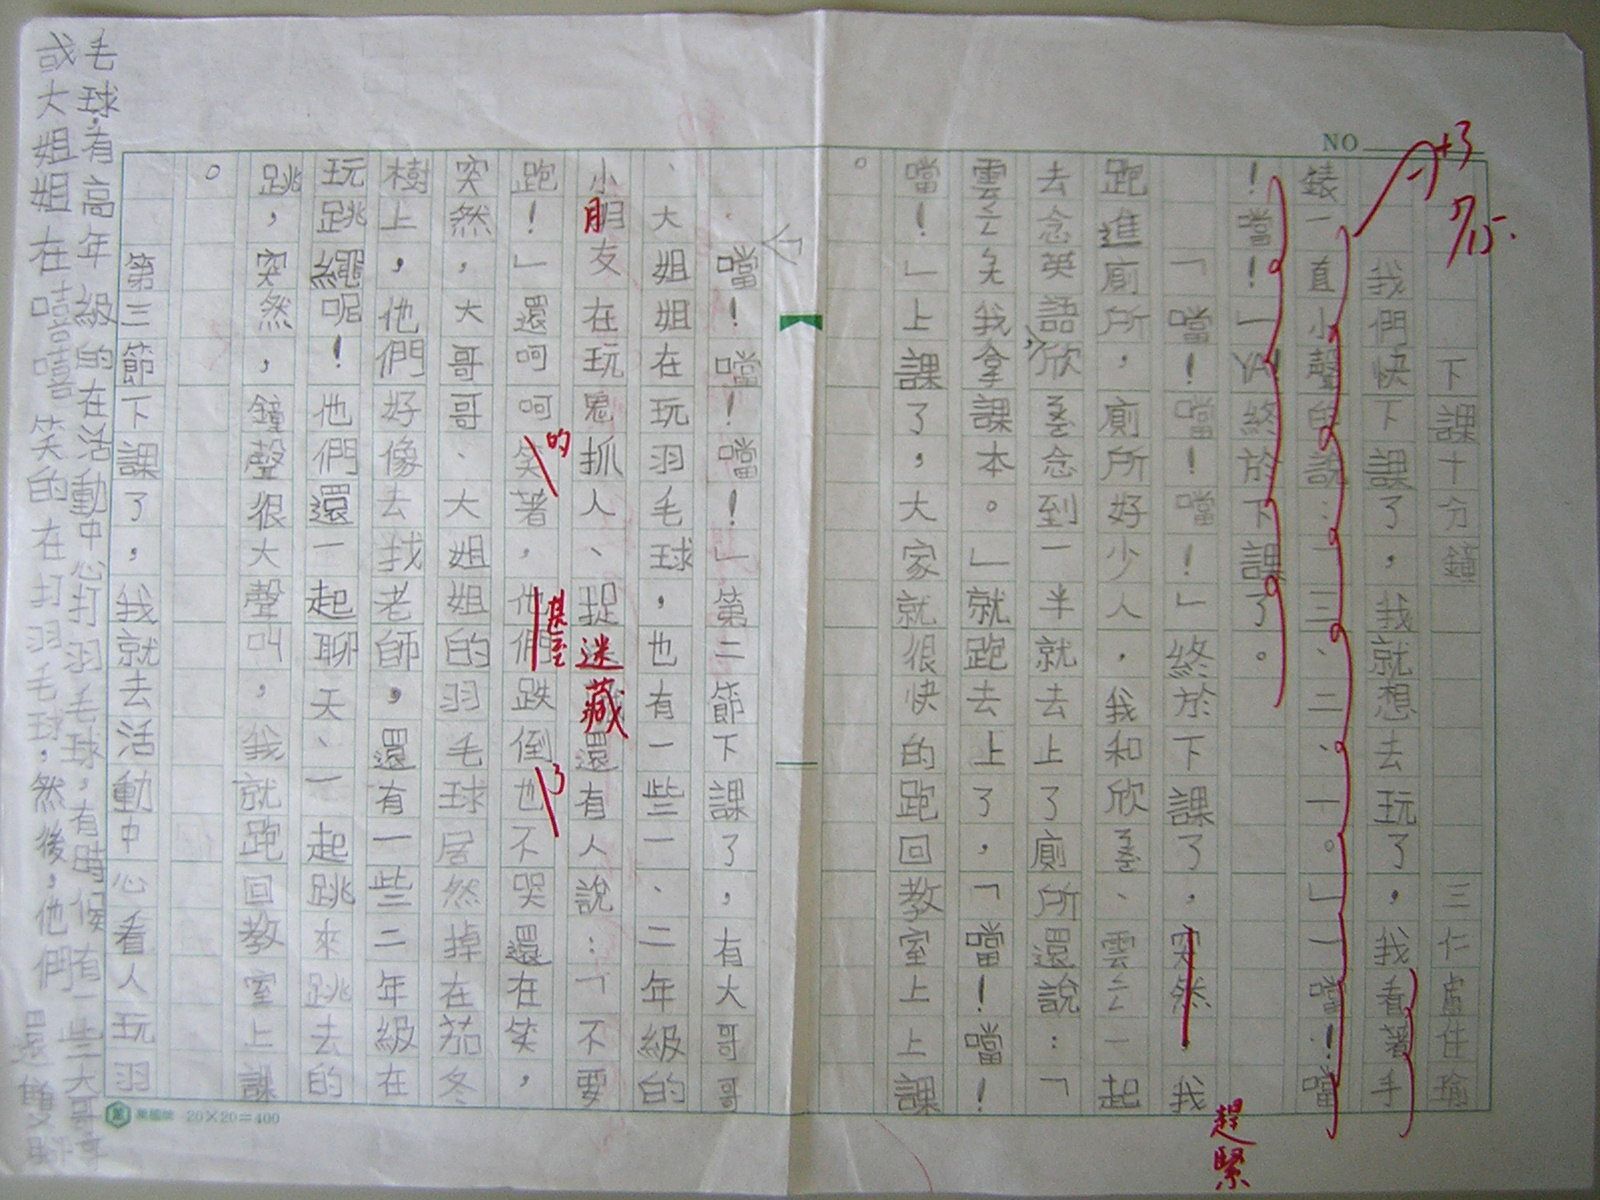 NO
+3
7/15.
下課十分鐘　三仁盧佳瑜
我們快下課了，我就想去玩了，我看著手
錶一直小聲的說：「三、二、一。」「噹！噹
！噹！」YA！終於下課了。
「噹！噹！噹！」終於下課了，突然，我
趕緊
跑進廁所，廁所好少人，我和欣、雲云一起
去念英語，欣念到一半就去上了廁所還說：「
雲云先我拿課本。」就跑去上了，「噹！噹！
噹！」上課了，大家就很快的跑回教室上上課
。
噹！噹！噹！」第二節下課了，有大哥哥
、大姐姐在玩羽毛球，也有一些一、二年級的
小朋友在玩鬼抓人、捉迷藏還有人說：「不要
跑！」還呵呵笑著，他們跌倒也不哭還在笑，
的
甚至
了
突然，大哥哥、大姐姐的羽毛球居然掉在茄冬
樹上，他們好像去找老師，還有一些二年級在
玩跳繩呢！他們還一起聊天、一起跳來跳去的
跳，突然，鐘聲很大聲叫，我就跑回教室上課
。
第三節下課了，我就去活動中心看人玩羽
毛球，有高年級的在活動中心打羽毛球，有時候有一些大哥哥
或大姐姐在嘻嘻笑的在打羽毛球，然後，他們還
萬國牌 20×20=400